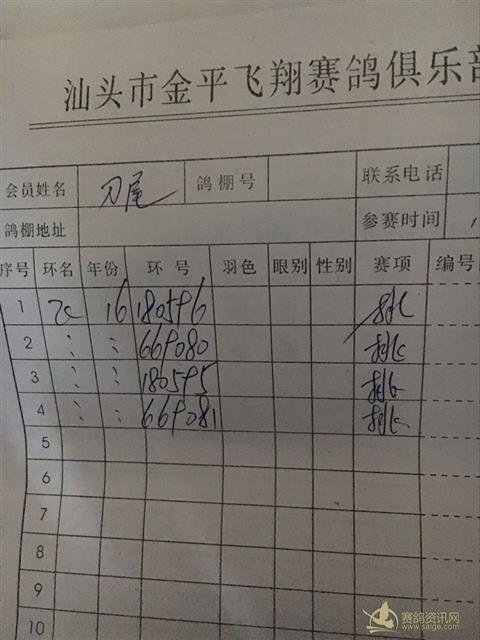 汕头市金平飞翔赛鸽俱乐部
会员姓名 刀尾 鸽棚号 联系电话
鸽棚地址 参赛时间
序号 环名 年份 环号 羽色 眼别 性别 赛项 编号
1 16 180596
2 : : 669080 挑
3 : : 180595 挑
4 : : 669081 挑
5
6
7
8
9
10
赛鸽资讯网
www.saige.com